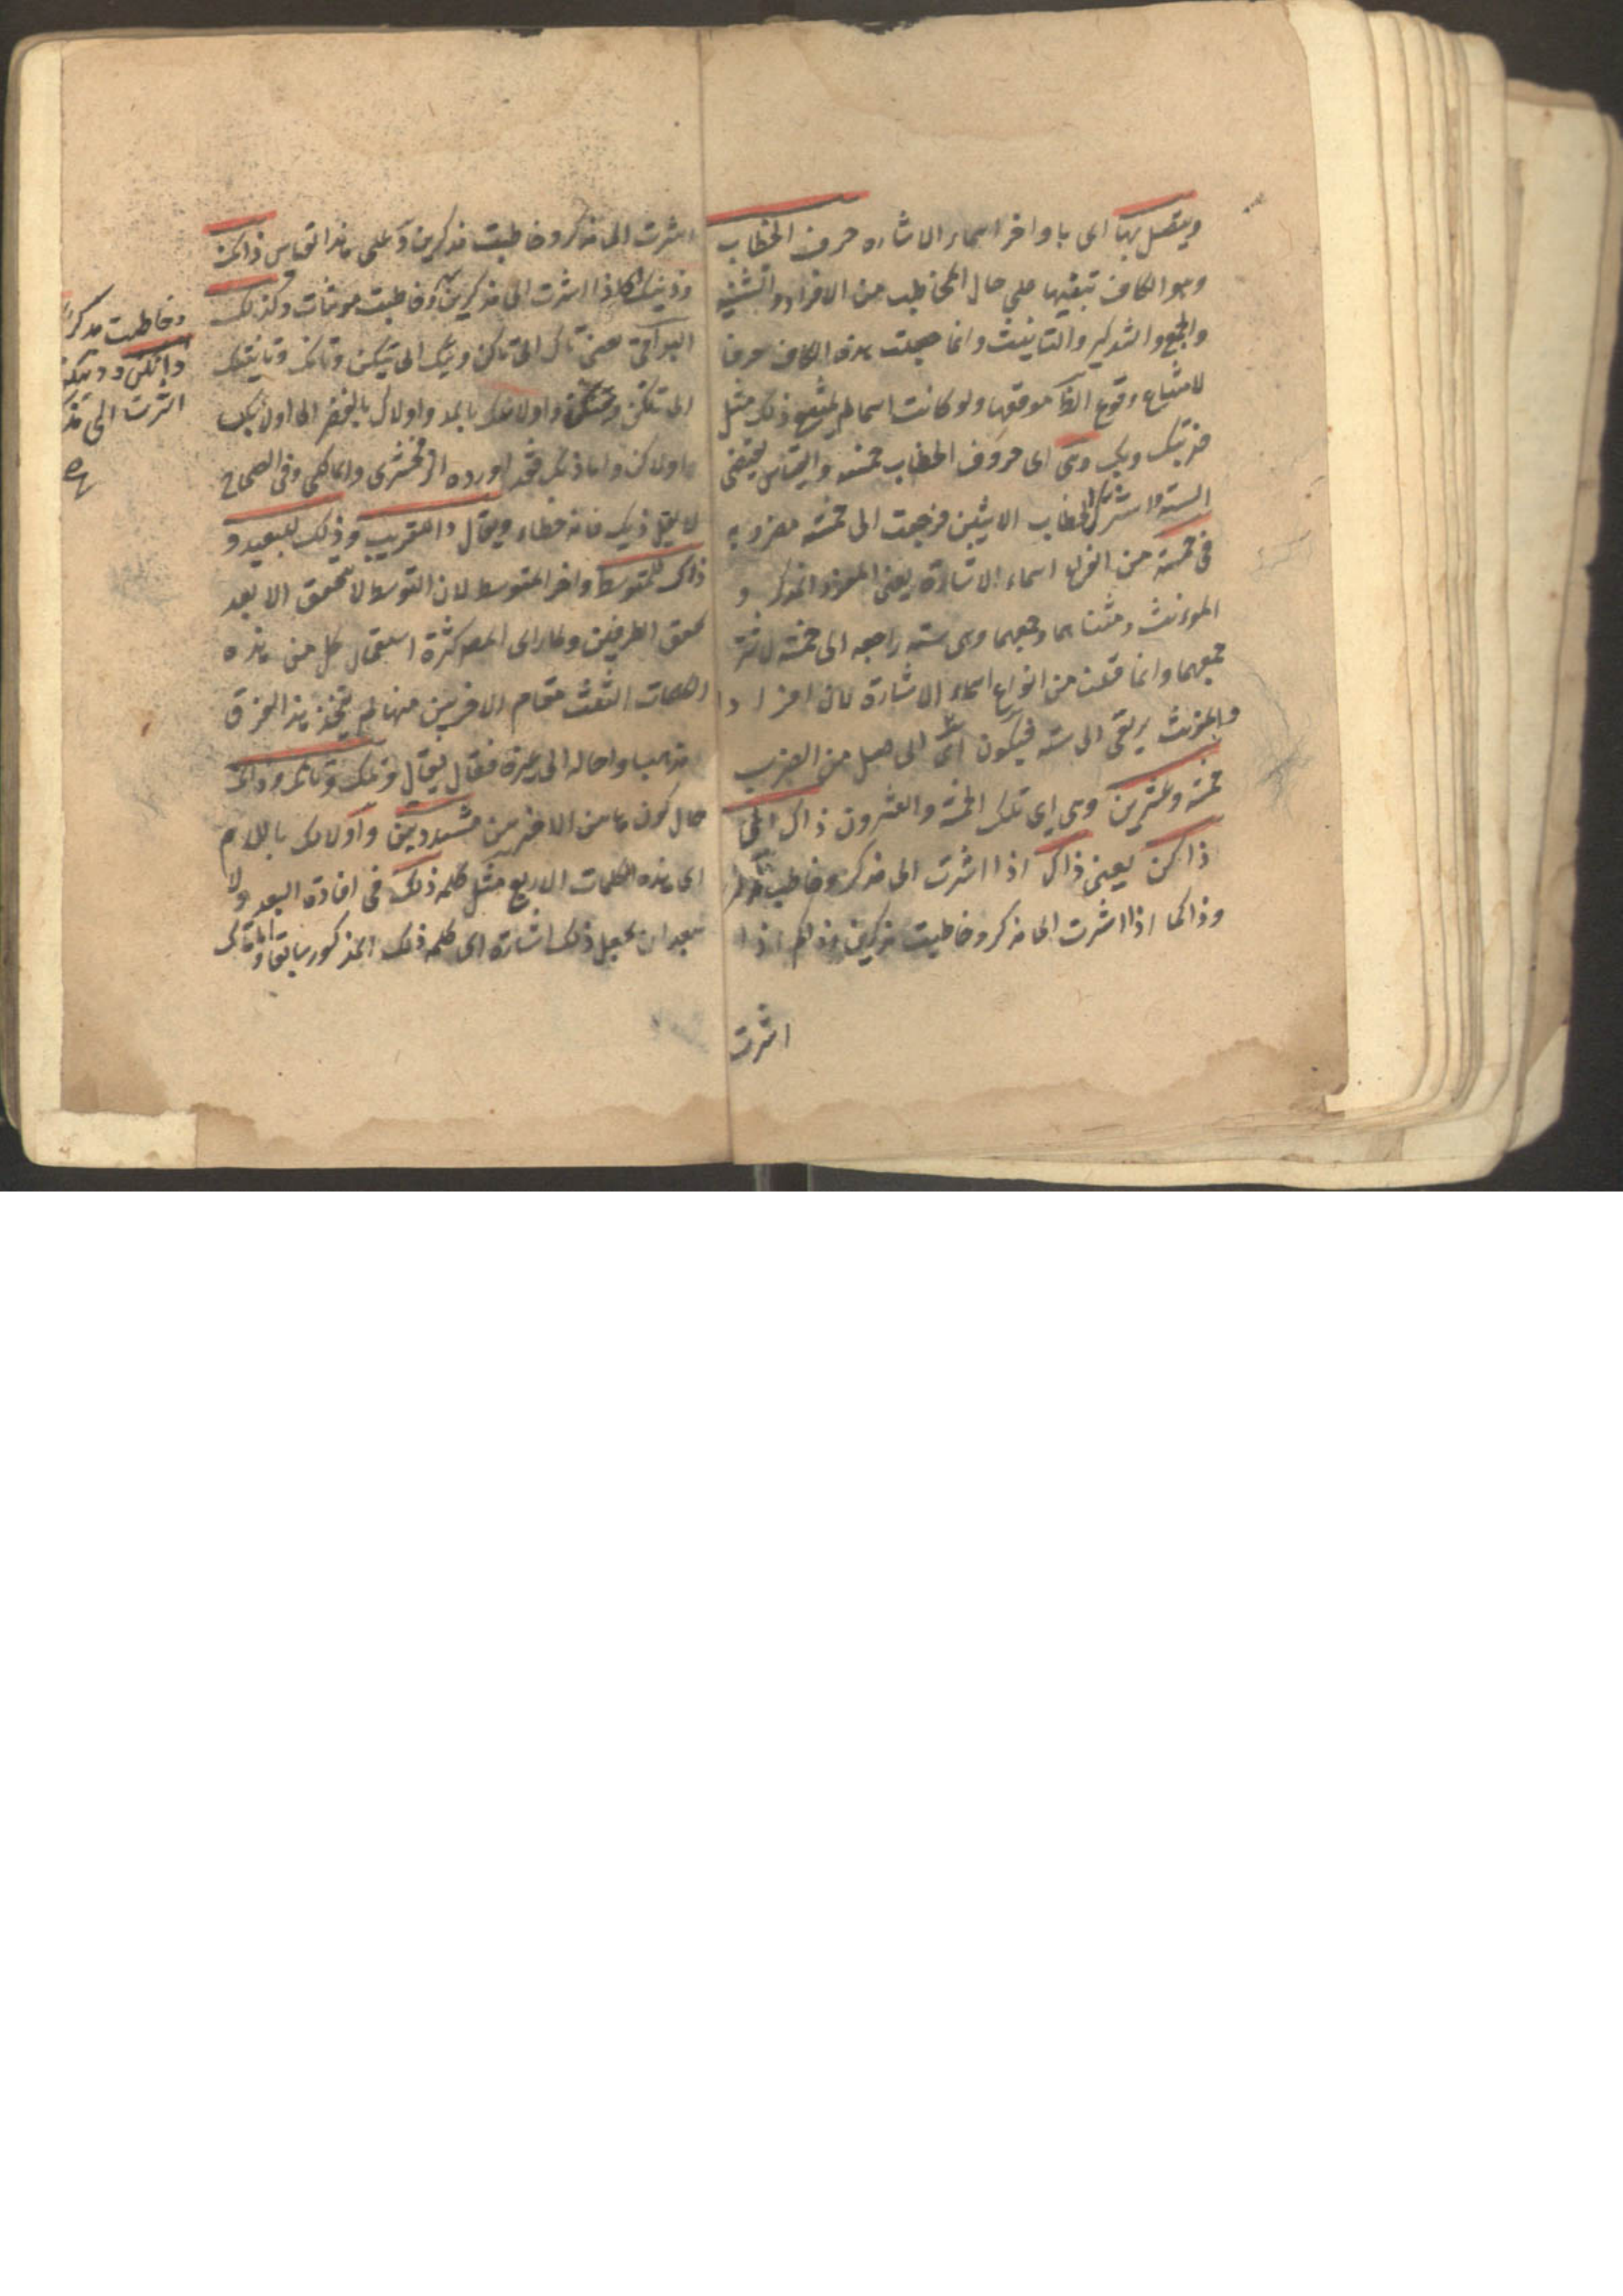 ويتصل بها اى باواخر اسماء الاشاره حرف الخطاب
وهو الكاف تبنيها على حال المخاطب من الافراد والتثنيه
والجمع والتذكير والتانيث وانما جعلت هذه الكاف حرفا
لامتناع وقوع الظاهر موقعها ولو كانت اسما لم يمتنع ذلك مثل
ضربتك وبك وهى اى حروف الخطاب خمسة والقياس يقتضى
الستة واشترك خطاب الاثنين فرجعت الى خمسة مضروبة
فى خمسة من انواع اسماء الاشارة يعنى المفرد المذكر و
المؤنث ومثناهما وجمعهما وهى سته راجعه الى خمسة لاشتراك
جمعهما وانما قلنا من انواع اسماء الاشارة لان افراد
والمؤنث يرتقى الى سته فيكون اى الحاصل من الضرب
خمسة وعشرين وهى اى تلك الخمسة والعشرون ذاك الى
ذاكن يعنى ذاك اذا اشرت الى مذكر وخاطبت مذكرا
وذاكما اذا اشرت الى مذكر وخاطبت مذكرين وذاكم اذا
اشرت
اشرت الى مذكر وخاطبت مذكرين وعلى هذا القياس ذانك
وذينك اذا اشرت الى مذكرين وخاطبت مونثات وكذلك
البواقى يعنى تاك الى تاكن وتيك الى تيكن وتانك وتينك
الى تنكن واولائك بالمد واولاك بالقصر الى اولئكن
اولاكن واما ذيك فقد اورده الزمخشرى والمالكى وفى الصحاح
لا يقل ذيك فانه خطاء ويقال ذا للقريب وذلك للبعيد و
ذاك للمتوسط واخر المتوسط لان التوسط لا يتحقق الا بعد
تحقق الطرفين ولما راى المص كثرة استعمال كل من هذه
الكلمات الثلث مقام الاخريين منها لم يتخذ هذا الفرق
مذهبا واحاله الى غيره فقال يقال وتلك وتانك وذانك
حال كون هاتين الاخريين مشددتين واولالك باللام
اى هذه الكلمات الاربع مثل كلمة ذلك فى افادة البعد ولا
يبعد ان يجعل ذلك اشارة الى كلمة ذلك المذكور سابقا
وخاطبت مذكرا
ذانكن وذينكن
اشرت الى مذ